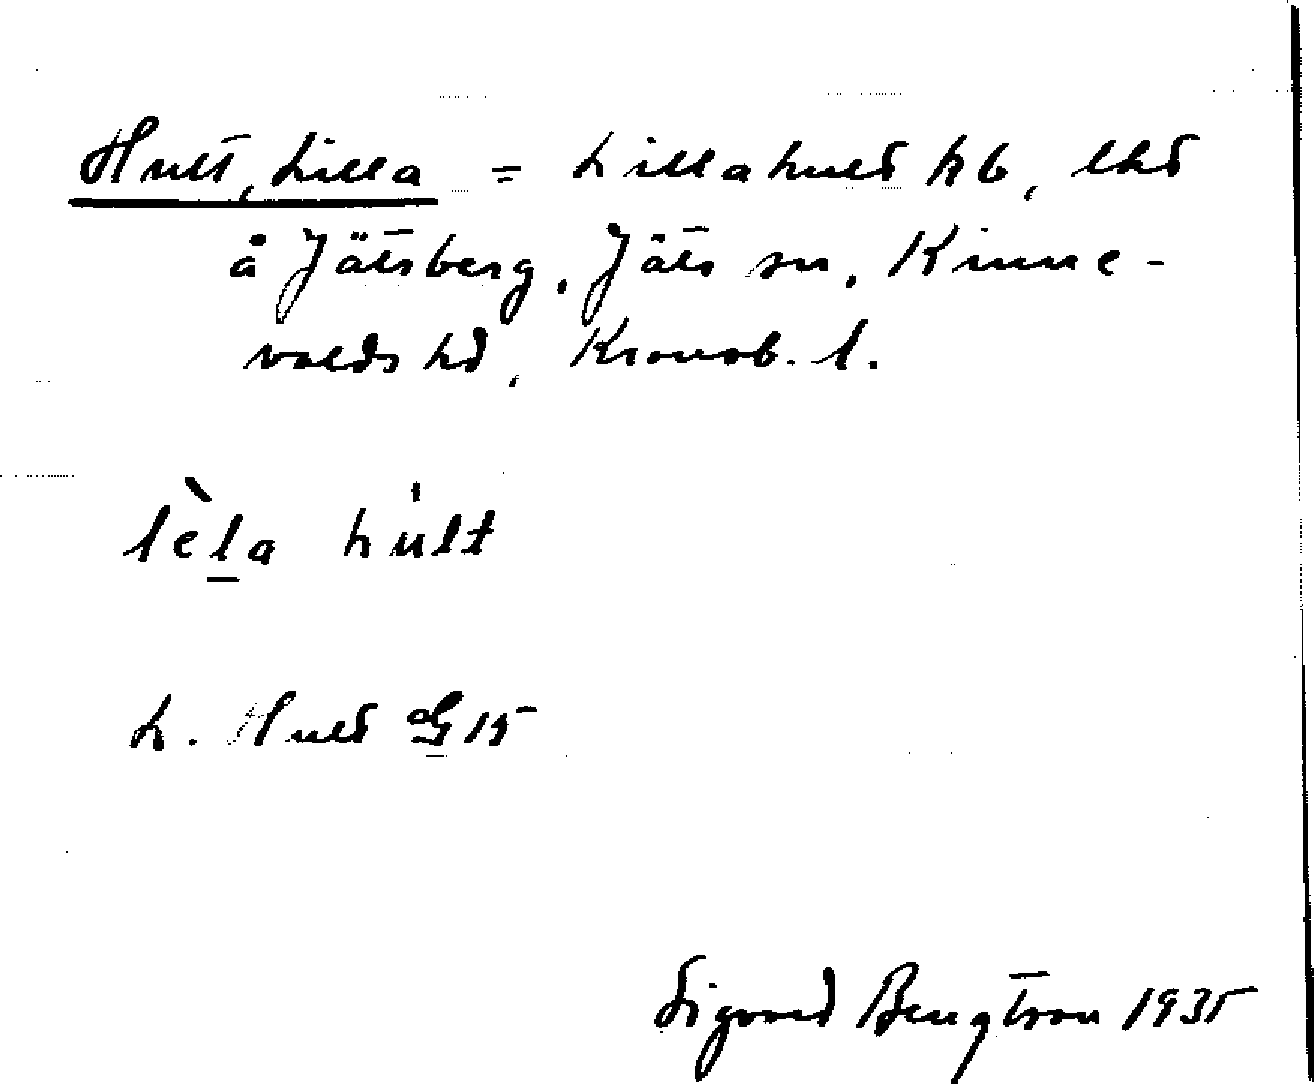 Hult, Lilla = Lillahult hb, lht
å Jätsberg, Jäts sn, Kinne-
valds hd, Kronob. l.
lèla hult
L. Hult GG 15
Sigvard Bengtson 1935